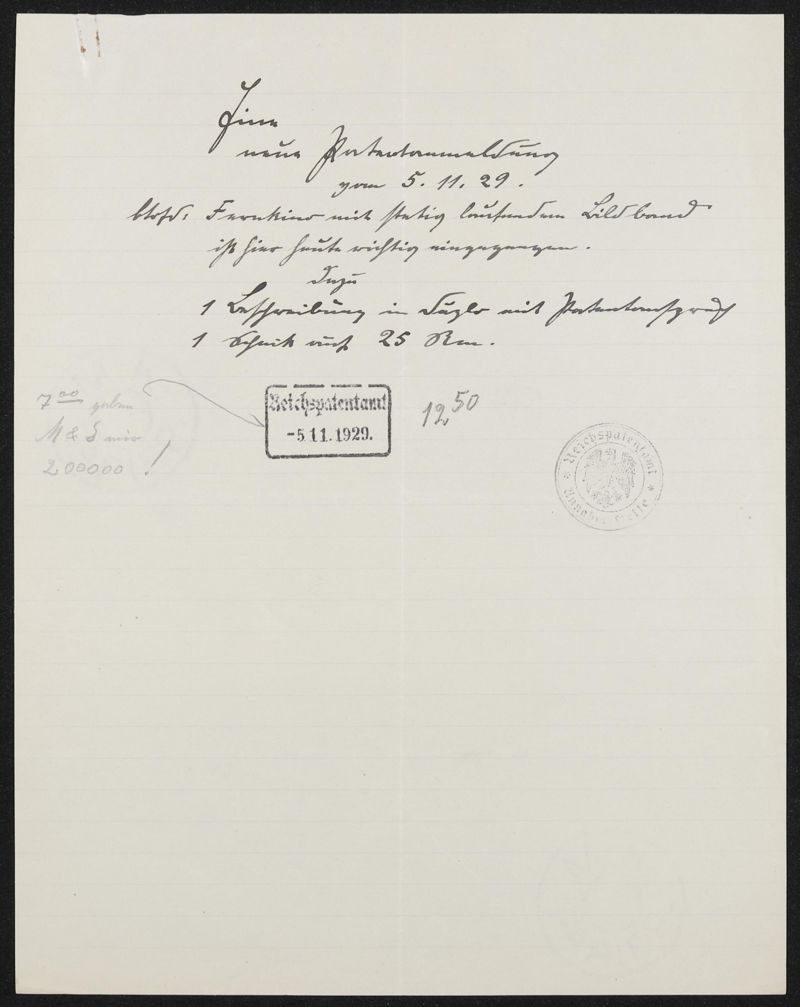 Eine
neue Patentanmeldung
vom 5. 11. 29.
btrfd. Fernkino mit stetig laufendem Bildband
ist hier heute richtig eingegangen.
Dazu
1 Beschreibung in Duplo mit Patentanspruch
1 Scheck auf 25 Rm.
7⁰⁰ gaben
M & S mir
200000 !
Reichspatentamt
-5.11.1929.
12,50
Reichspatentamt